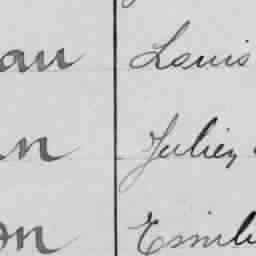 au Louis
n Julien
on Emile